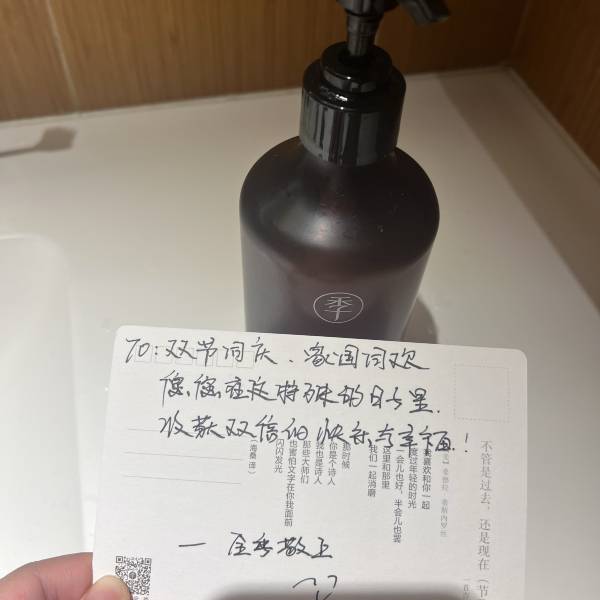 季
TO:双节同庆、家国同欢
愿您在这特殊的日子里.
收获双倍的快乐与幸福!
— 全季敬上
不管是过去,还是现在(节
我喜欢和你一起
度过年轻的时光
一会儿也好,半会儿也罢
这里和那里
我们一起消磨
那时候
你是个诗人
我也是诗人
那些大师们
也害怕文字在你我面前
闪闪发光
(海桑 译)